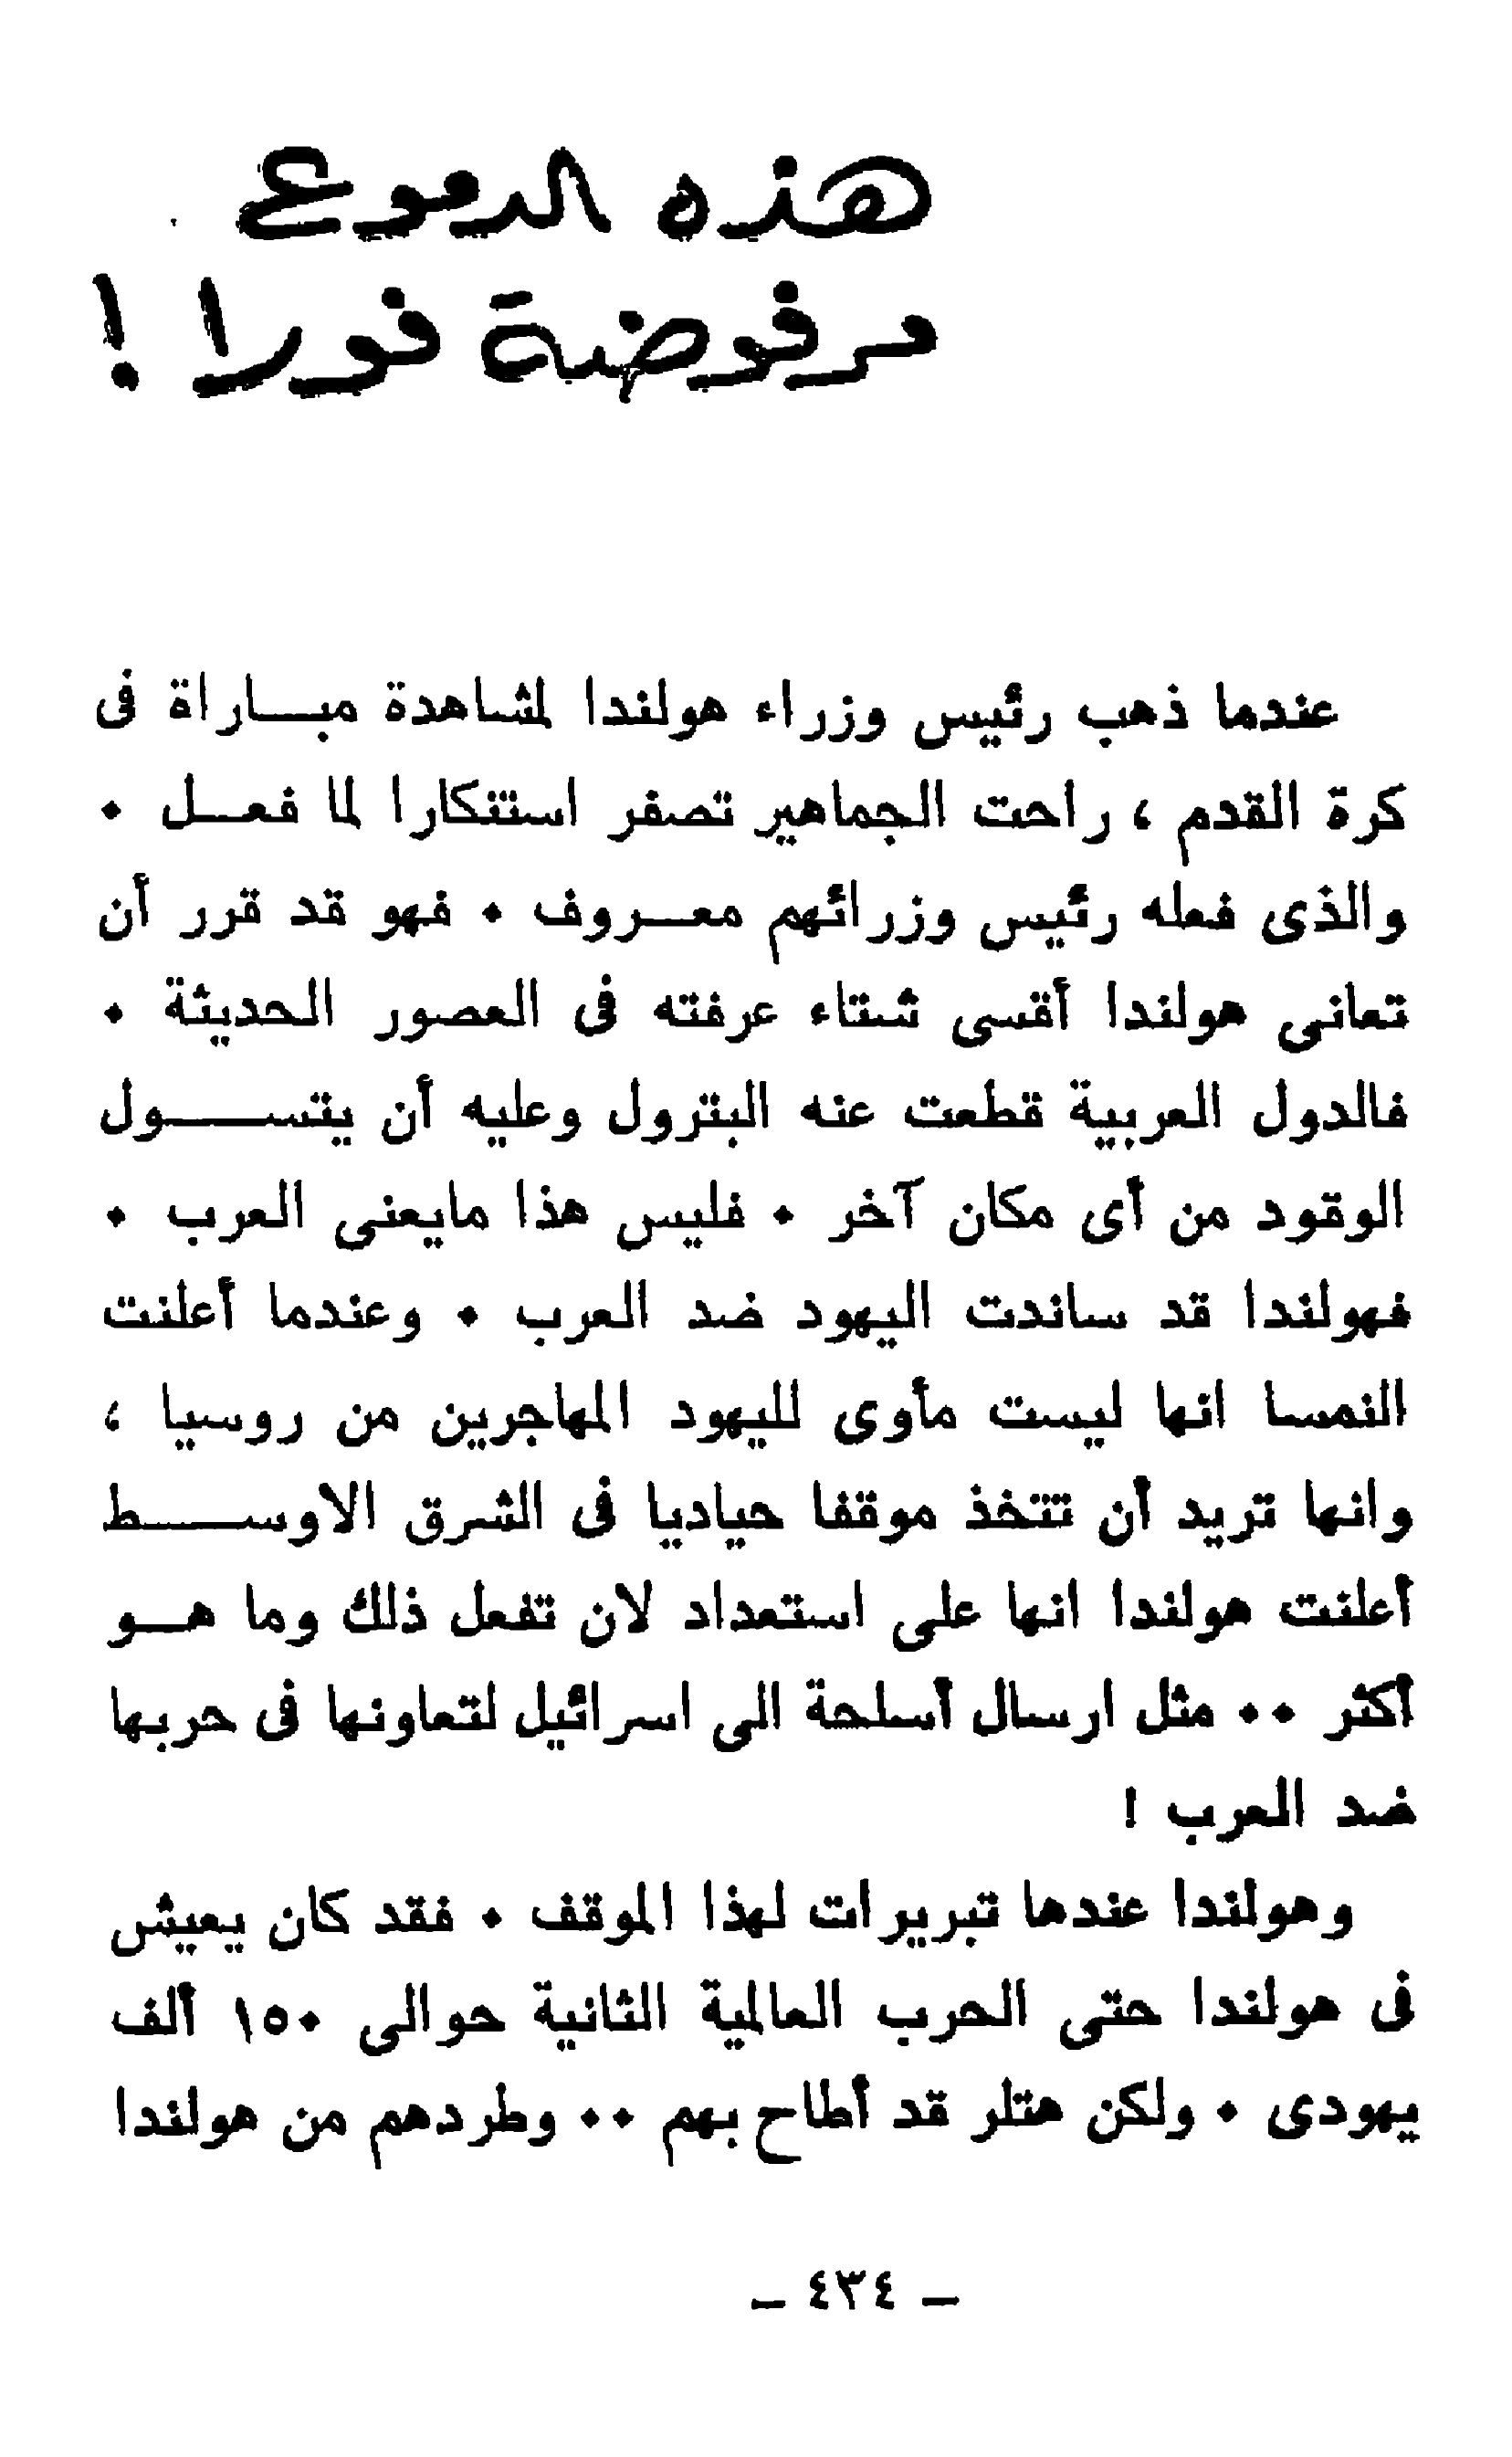 هذه الدموع
مرفوضة فورا !
عندما ذهب رئيس وزراء هولندا لمشاهدة مبـاراة فى
كرة القدم ، راحت الجماهير تصفر استنكارا لما فعـل .
والذى فعله رئيس وزرائهم معـروف . فهو قد قرر أن
تعانى هولندا أقسى شتاء عرفته فى العصور الحديثة .
فالدول العربية قطعت عنه البترول وعليه أن يتســول
الوقود من أى مكان آخر . فليس هذا مايعنى العرب .
فهولندا قد ساندت اليهود ضد العرب . وعندما أعلنت
النمسا انها ليست مأوى لليهود المهاجرين من روسيا ،
وانها تريد أن تتخذ موقفا حياديا فى الشرق الاوســط
أعلنت هولندا انها على استعداد لان تفعل ذلك وما هـو
أكثر .. مثل ارسال أسلحة الى اسرائيل لتعاونها فى حربها
ضد العرب !
وهولندا عندها تبريرات لهذا الموقف . فقد كان يعيش
فى هولندا حتى الحرب العالمية الثانية حوالى ١٥٠ ألف
يهودى . ولكن هتلر قد أطاح بهم .. وطردهم من هولندا
– ٤٣٤ –